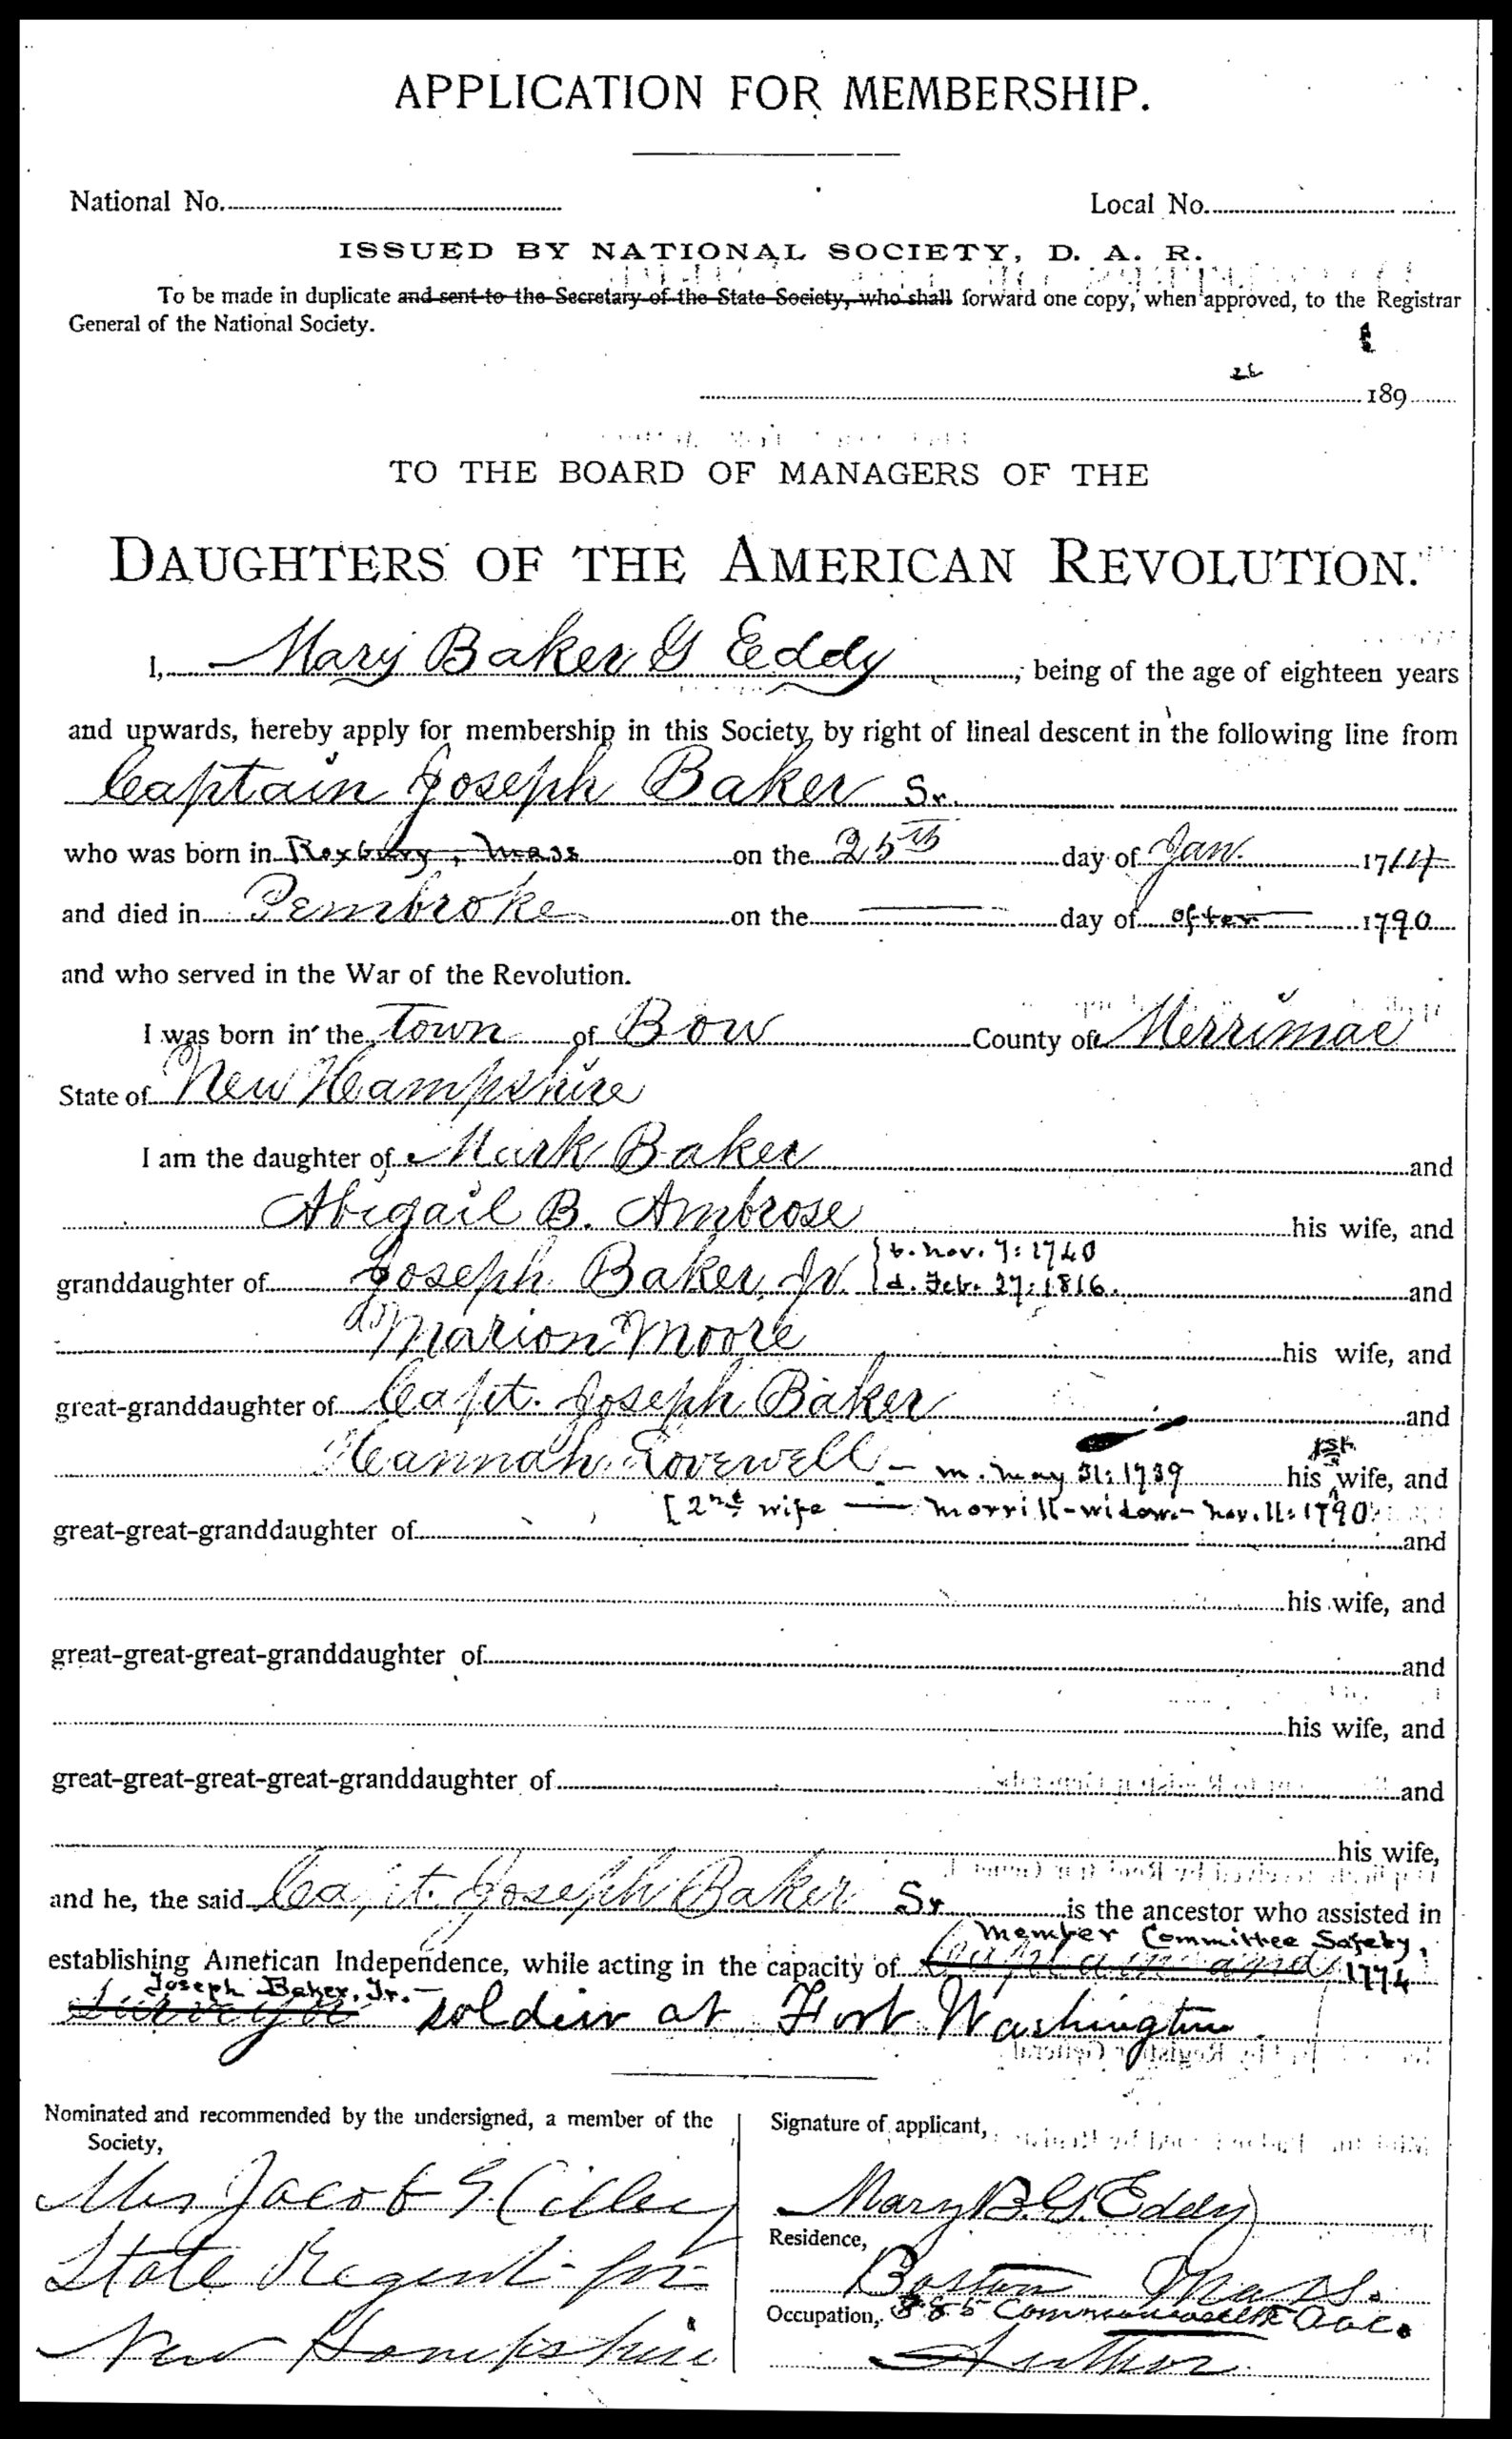 APPLICATION FOR MEMBERSHIP.
National No. Local No.
ISSUED BY NATIONAL SOCIETY, D. A. R.
To be made in duplicate and sent to the Secretary of the State Society, who shall forward one copy, when approved, to the Registrar
General of the National Society.
26
189
TO THE BOARD OF MANAGERS OF THE
DAUGHTERS OF THE AMERICAN REVOLUTION.
I, Mary Baker G Eddy, being of the age of eighteen years
and upwards, hereby apply for membership in this Society by right of lineal descent in the following line from
Captain Joseph Baker Sr.
who was born in Roxbury, Mass on the 25th day of Jan. 1714
and died in Pembroke on the day of after 1790
and who served in the War of the Revolution.
I was born in the Town of Bow County of Merrimac
State of New Hampshire
I am the daughter of Mark Baker and
Abigail B. Ambrose his wife, and
{b. Nov. 7: 1740
granddaughter of Joseph Baker, Jr. {d. Feb. 27: 1816. and
Marion Moore his wife, and
great-granddaughter of Capt. Joseph Baker and
Hannah Lovewell - m. May 31: 1739 his 1st wife, and
[2nd wife — Morrill - widow - Nov. 11: 1790
great-great-granddaughter of and
his wife, and
great-great-great-granddaughter of and
his wife, and
great-great-great-great-granddaughter of and
his wife,
and he, the said Capt. Joseph Baker Sr is the ancestor who assisted in
Member Committee Safety,
establishing American Independence, while acting in the capacity of Captain and 1774
Joseph Baker, Jr. -
Surveyor soldier at Fort Washington
Nominated and recommended by the undersigned, a member of the
Society,
Mrs Jacob G. Cilley
State Regent for
New Hampshire
Signature of applicant,
Mary B. G. Eddy
Residence,
Boston Mass.
Occupation, 385 Commonwealth Ave.
Author